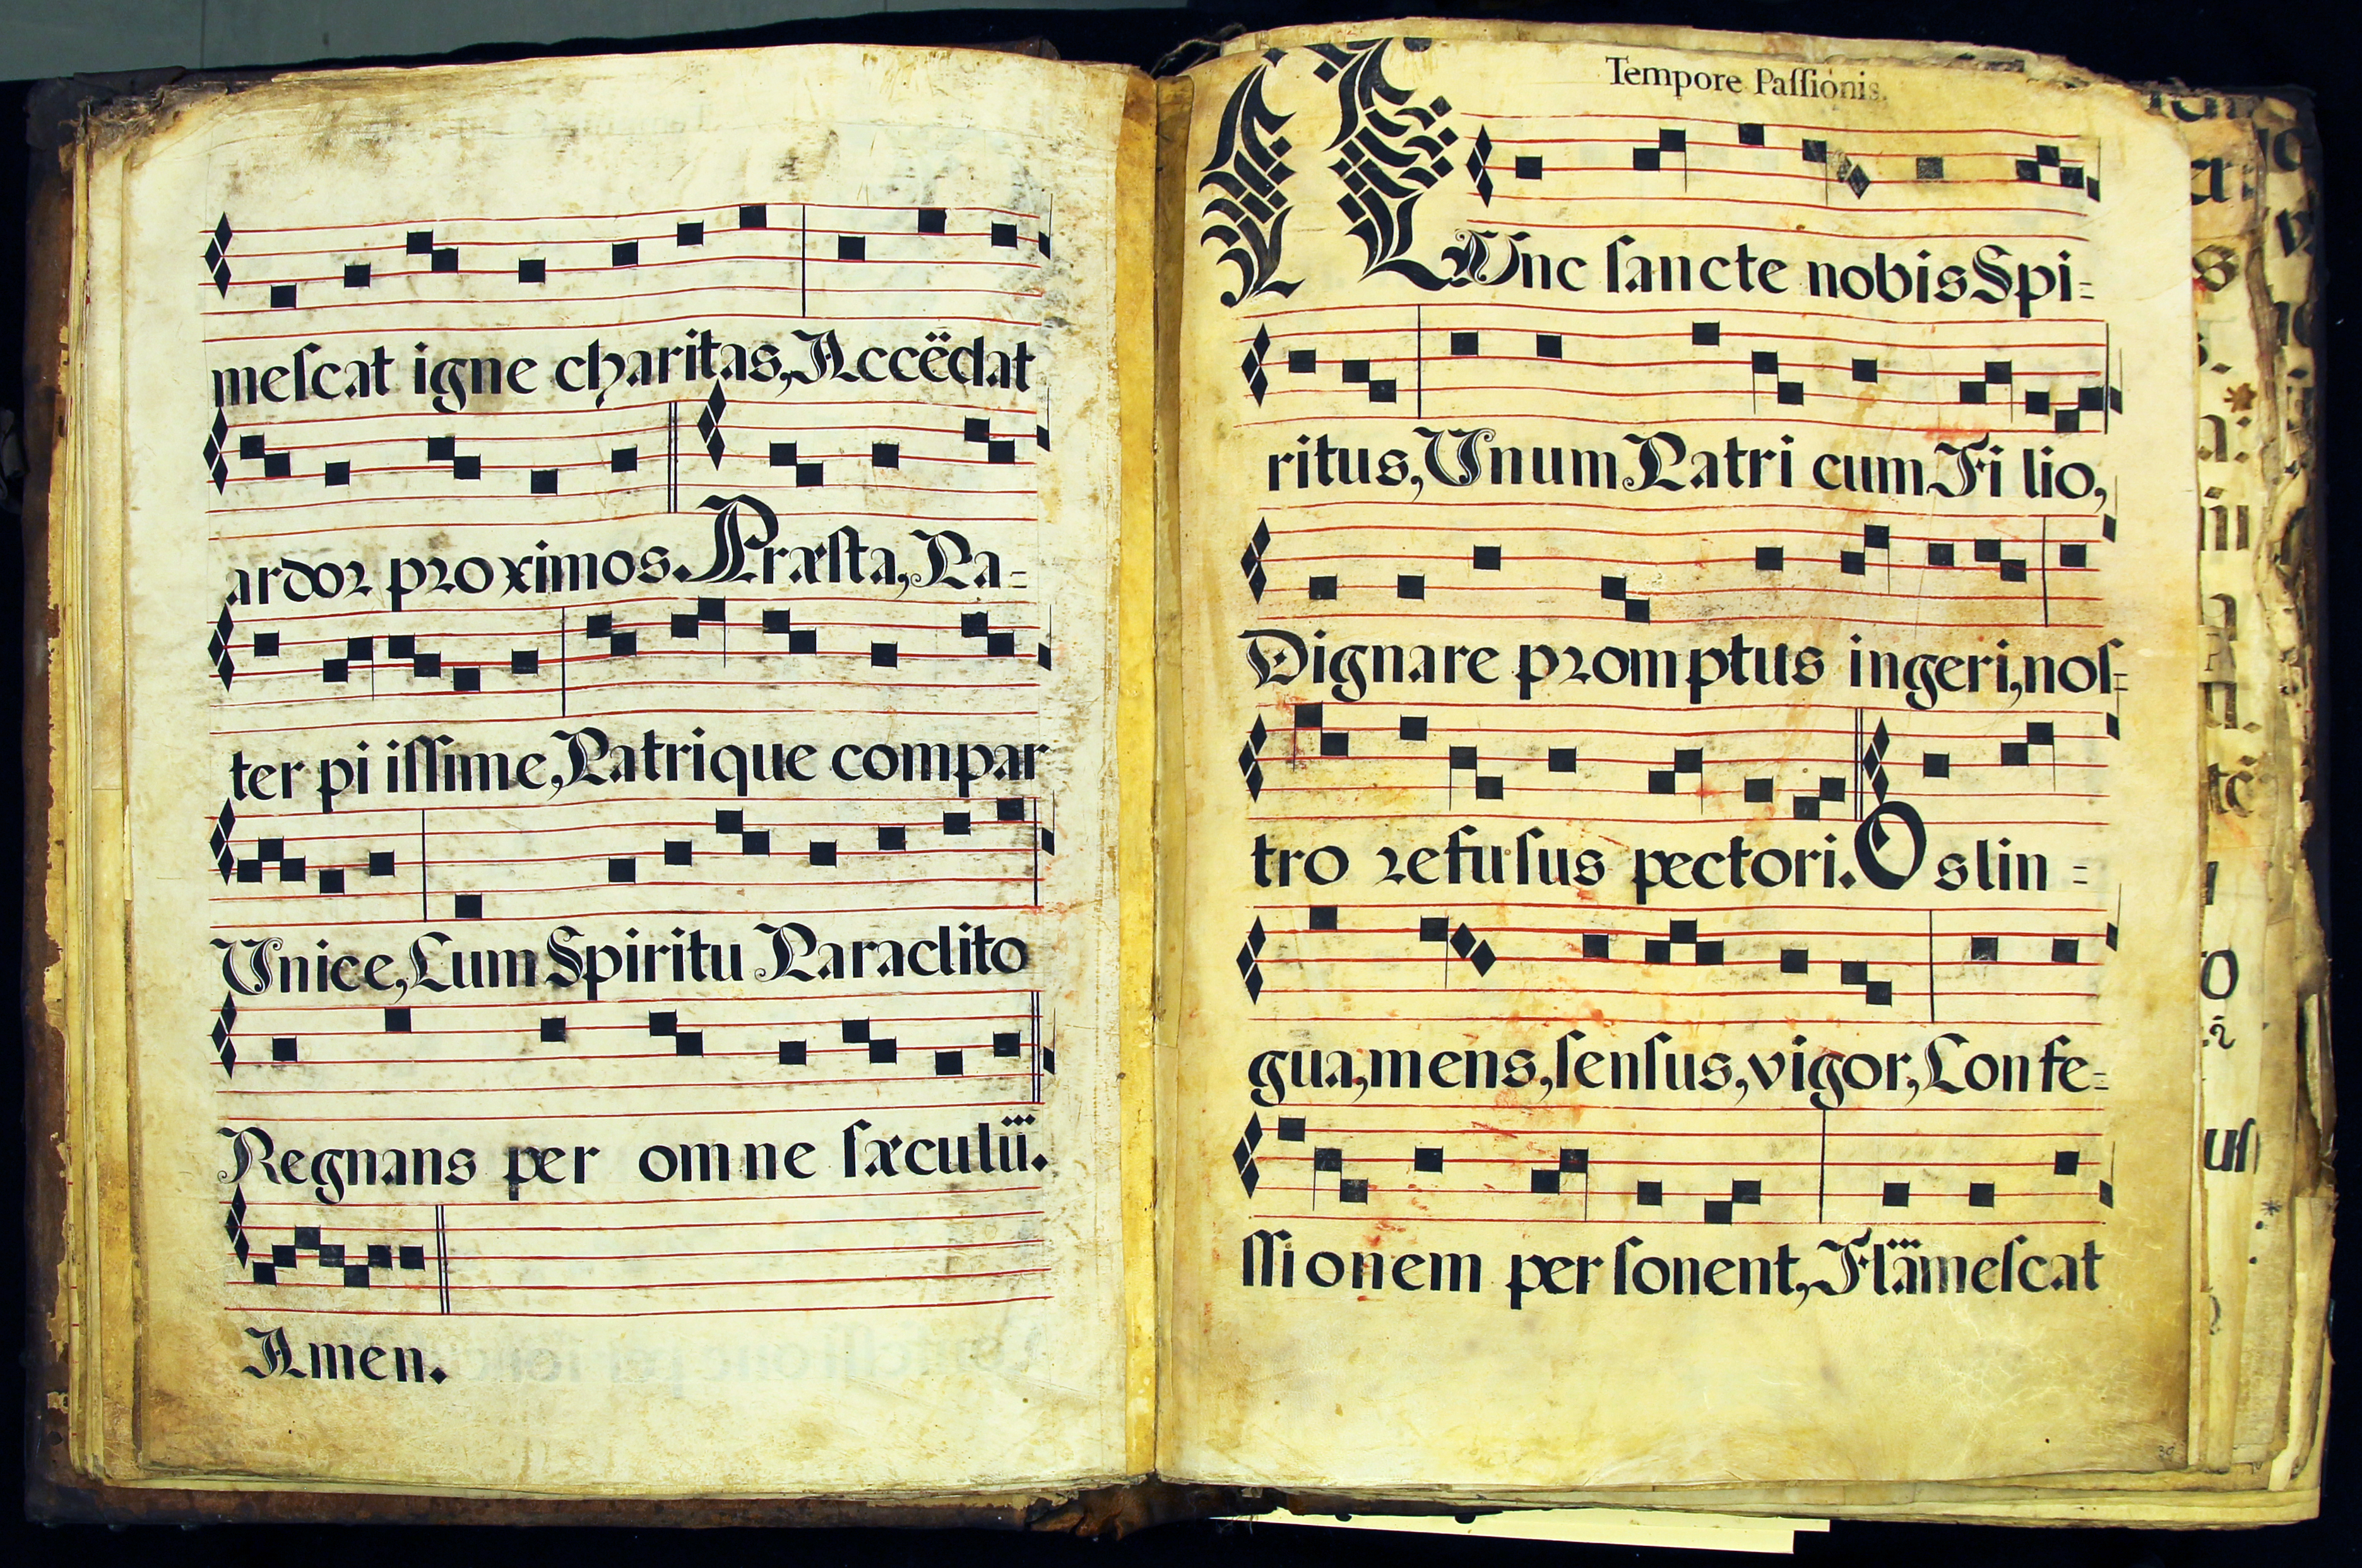 meſcat igne charitas, Accëdat
ardor proximos. Præſta, Pa=
ter pi iſſime, Patrique compar
Unice, Cum Spiritu Paraclito
Regnans per omne ſæculü.
Amen.
Tempore Paſſionis.
NUnc ſancte nobis Spi=
ritus, Unum Patri cum Fi lio,
Dignare promptus ingeri, noſ=
tro refuſus pectori. Os lin=
gua, mens, ſenſus, vigor, Confe=
ſſionem perſonent, Flämeſcat